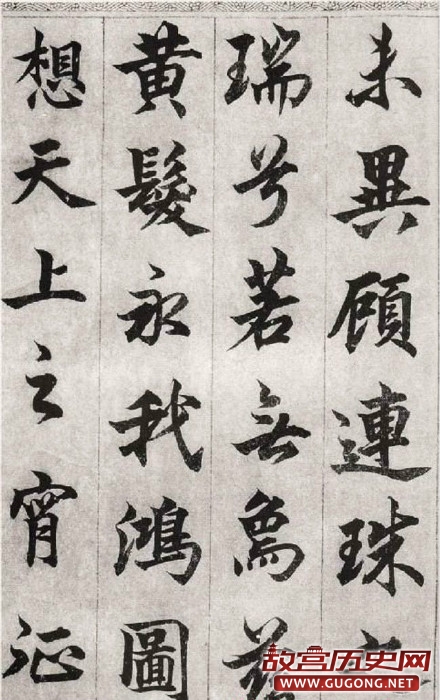 未異顧連珠
瑞兮若無為
黃髮永我鴻圖
想天上之宵征
故宫历史网
WWW.GUGONG.NET